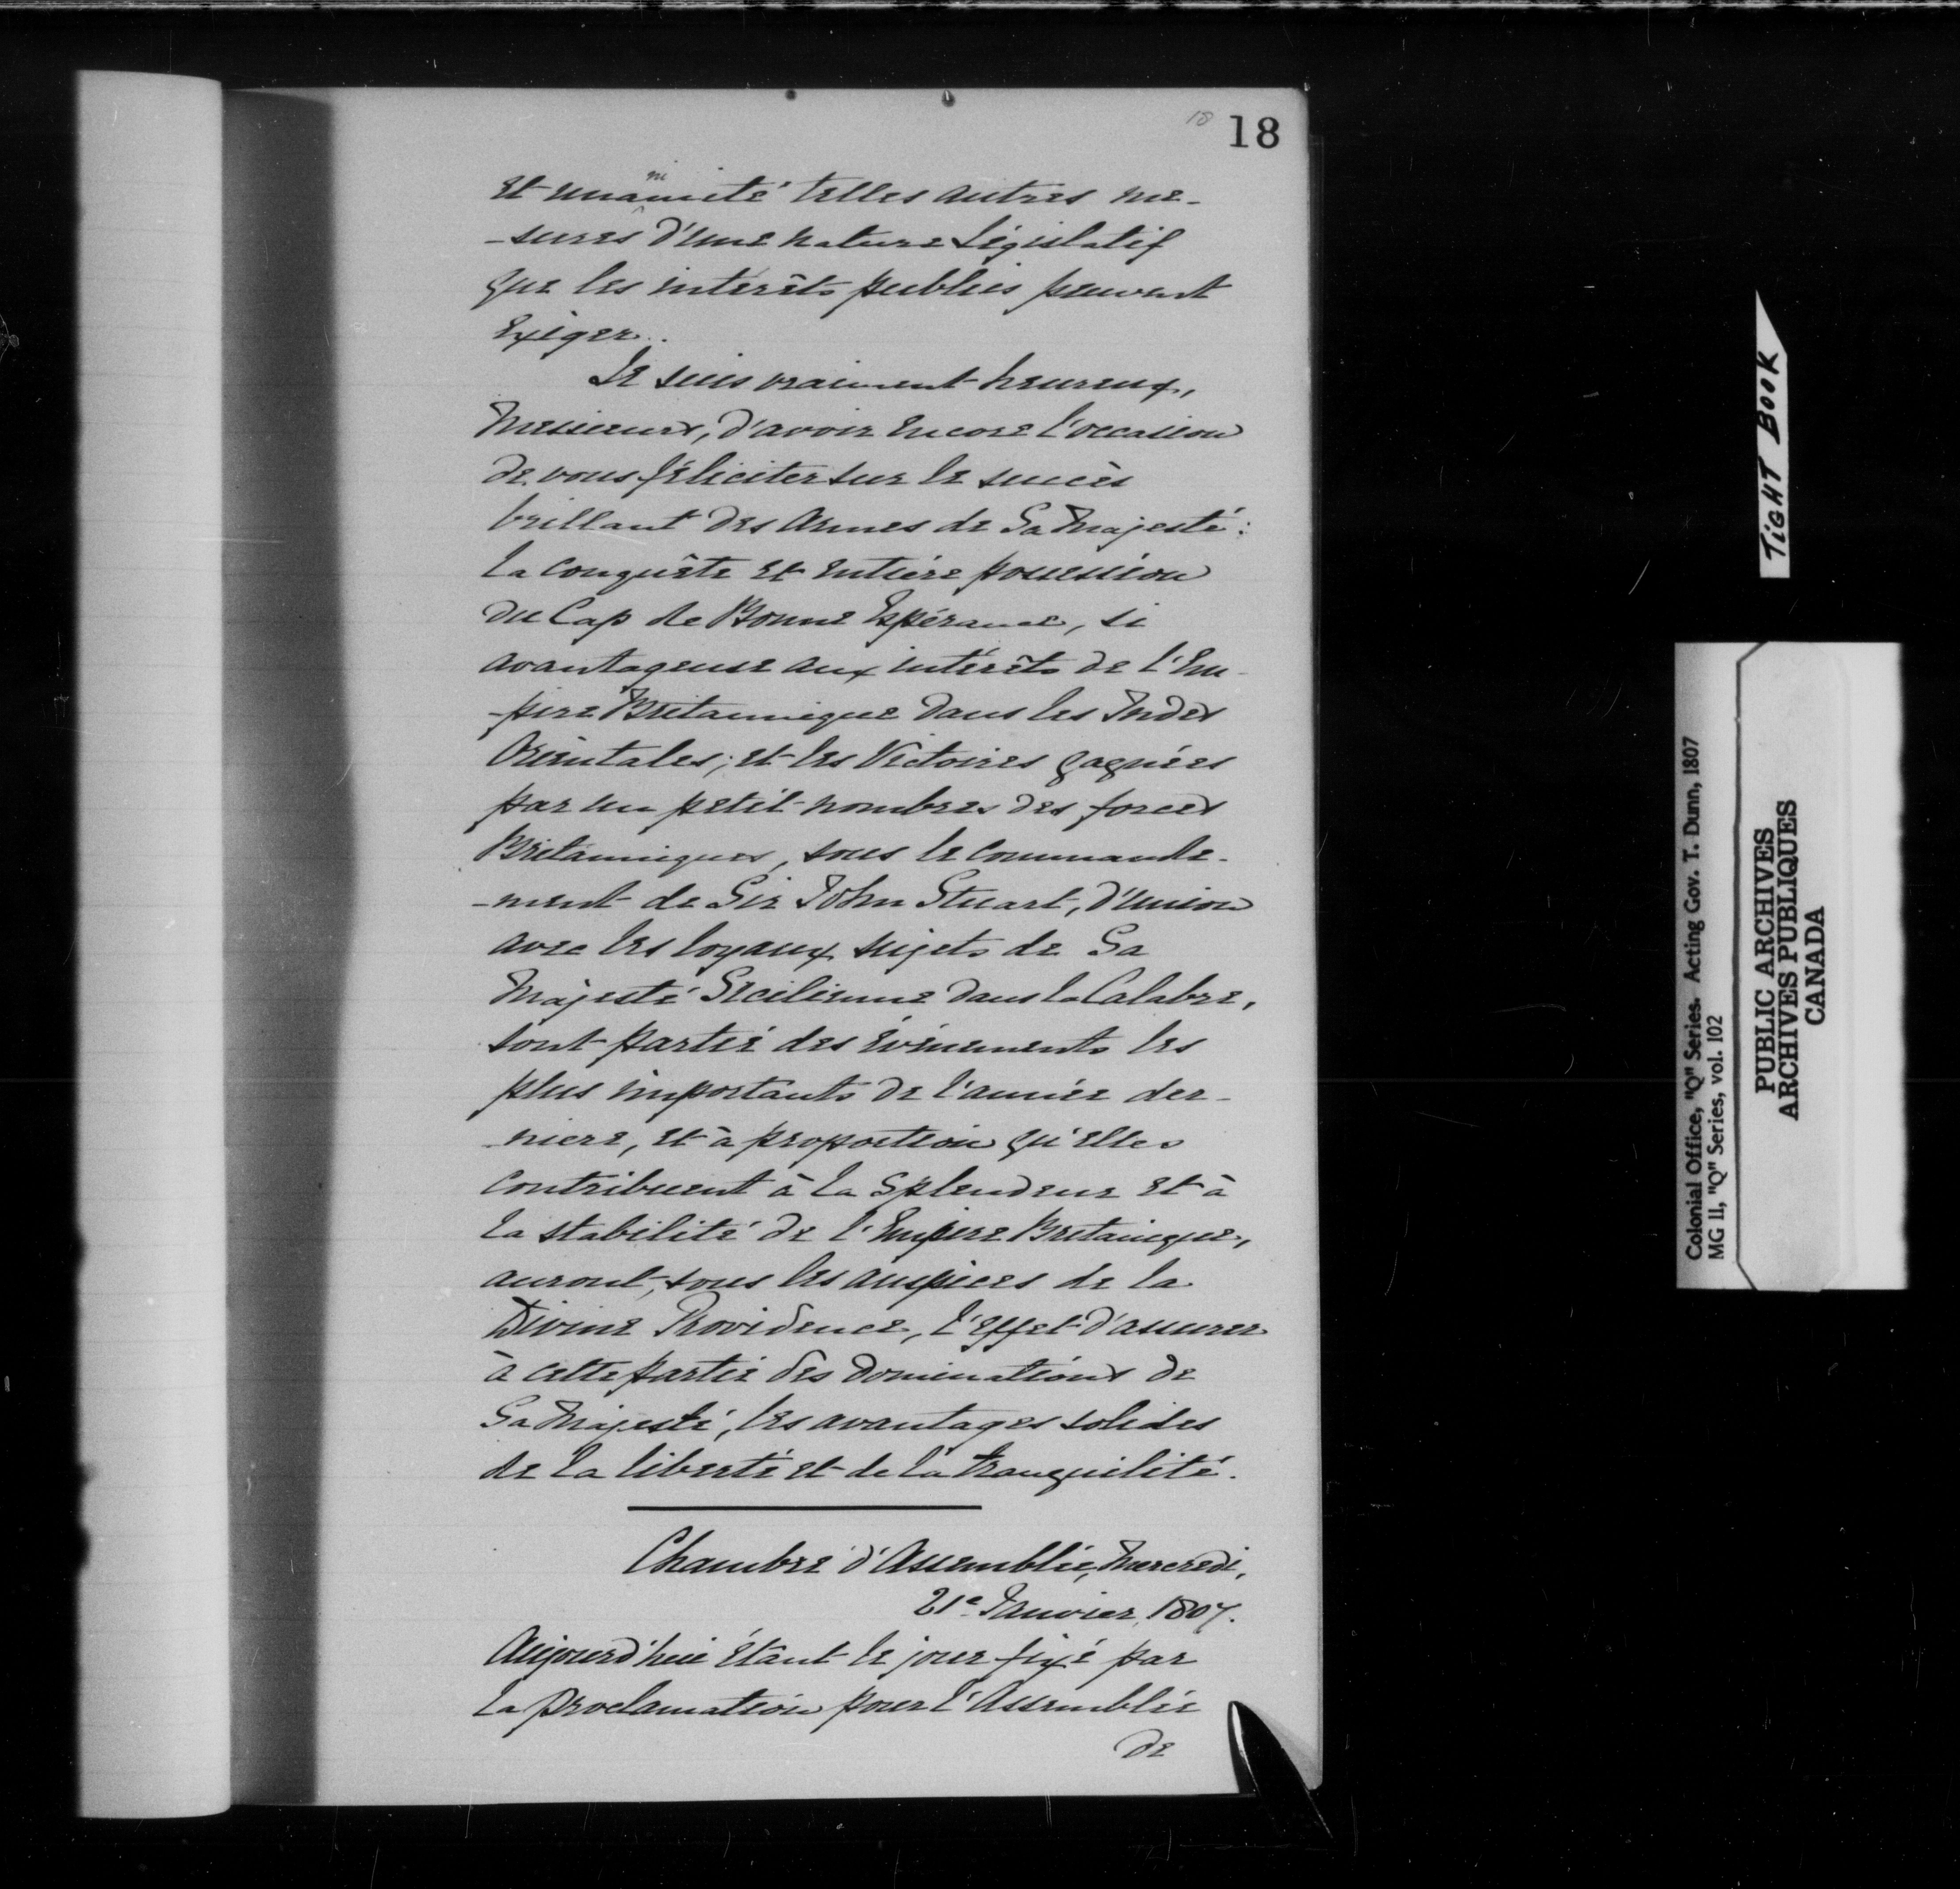 18 18
et unanimité telles autres me-
-sures d'une nature Législatif
que les intérêts publics peuvent
exiger..
Je suis vraiment heureux,
Messieurs, d'avoir encore l'occasion
de vous féliciter sur le succès
brillant des Armes de Sa Majesté:
la conquête et entière possession
du Cap de Bonne Espérance, si
avantageuse aux intérêts de l'Em-
-pire Britannique dans les Indes
Orientales; et les Victoires gagnées
par un petit nombres des forces
Britanniques, sous le commande-
-ment de Sir John Stuart, d'union
avec les loyaux sujets de Sa
Majesté Sicilienne dans la Calabre,
sont partie des événements les
plus importants de l'année der-
-niere, et à proportion qu'elles
contribuent à la splendeur et à
la stabilité de l'Empire Britanique,
auront, sous les auspices de la
Divine Providence, l'effet d'assurer
à cette partie des dominations de
Sa Majesté, les avantages solides
de la liberté et de la tranquilité.
Chambre d'Assemblée, Mercredi,
21e Janvier, 1807.
Aujourd'hui étant le jour fixé par
la proclamation pour l'Assemblée
de
TIGHT BOOK
Colonial Office, "Q" Series. Acting Gov. T. Dunn, 1807
MG 11, "Q" Series, vol. 102
PUBLIC ARCHIVES
ARCHIVES PUBLIQUES
CANADA